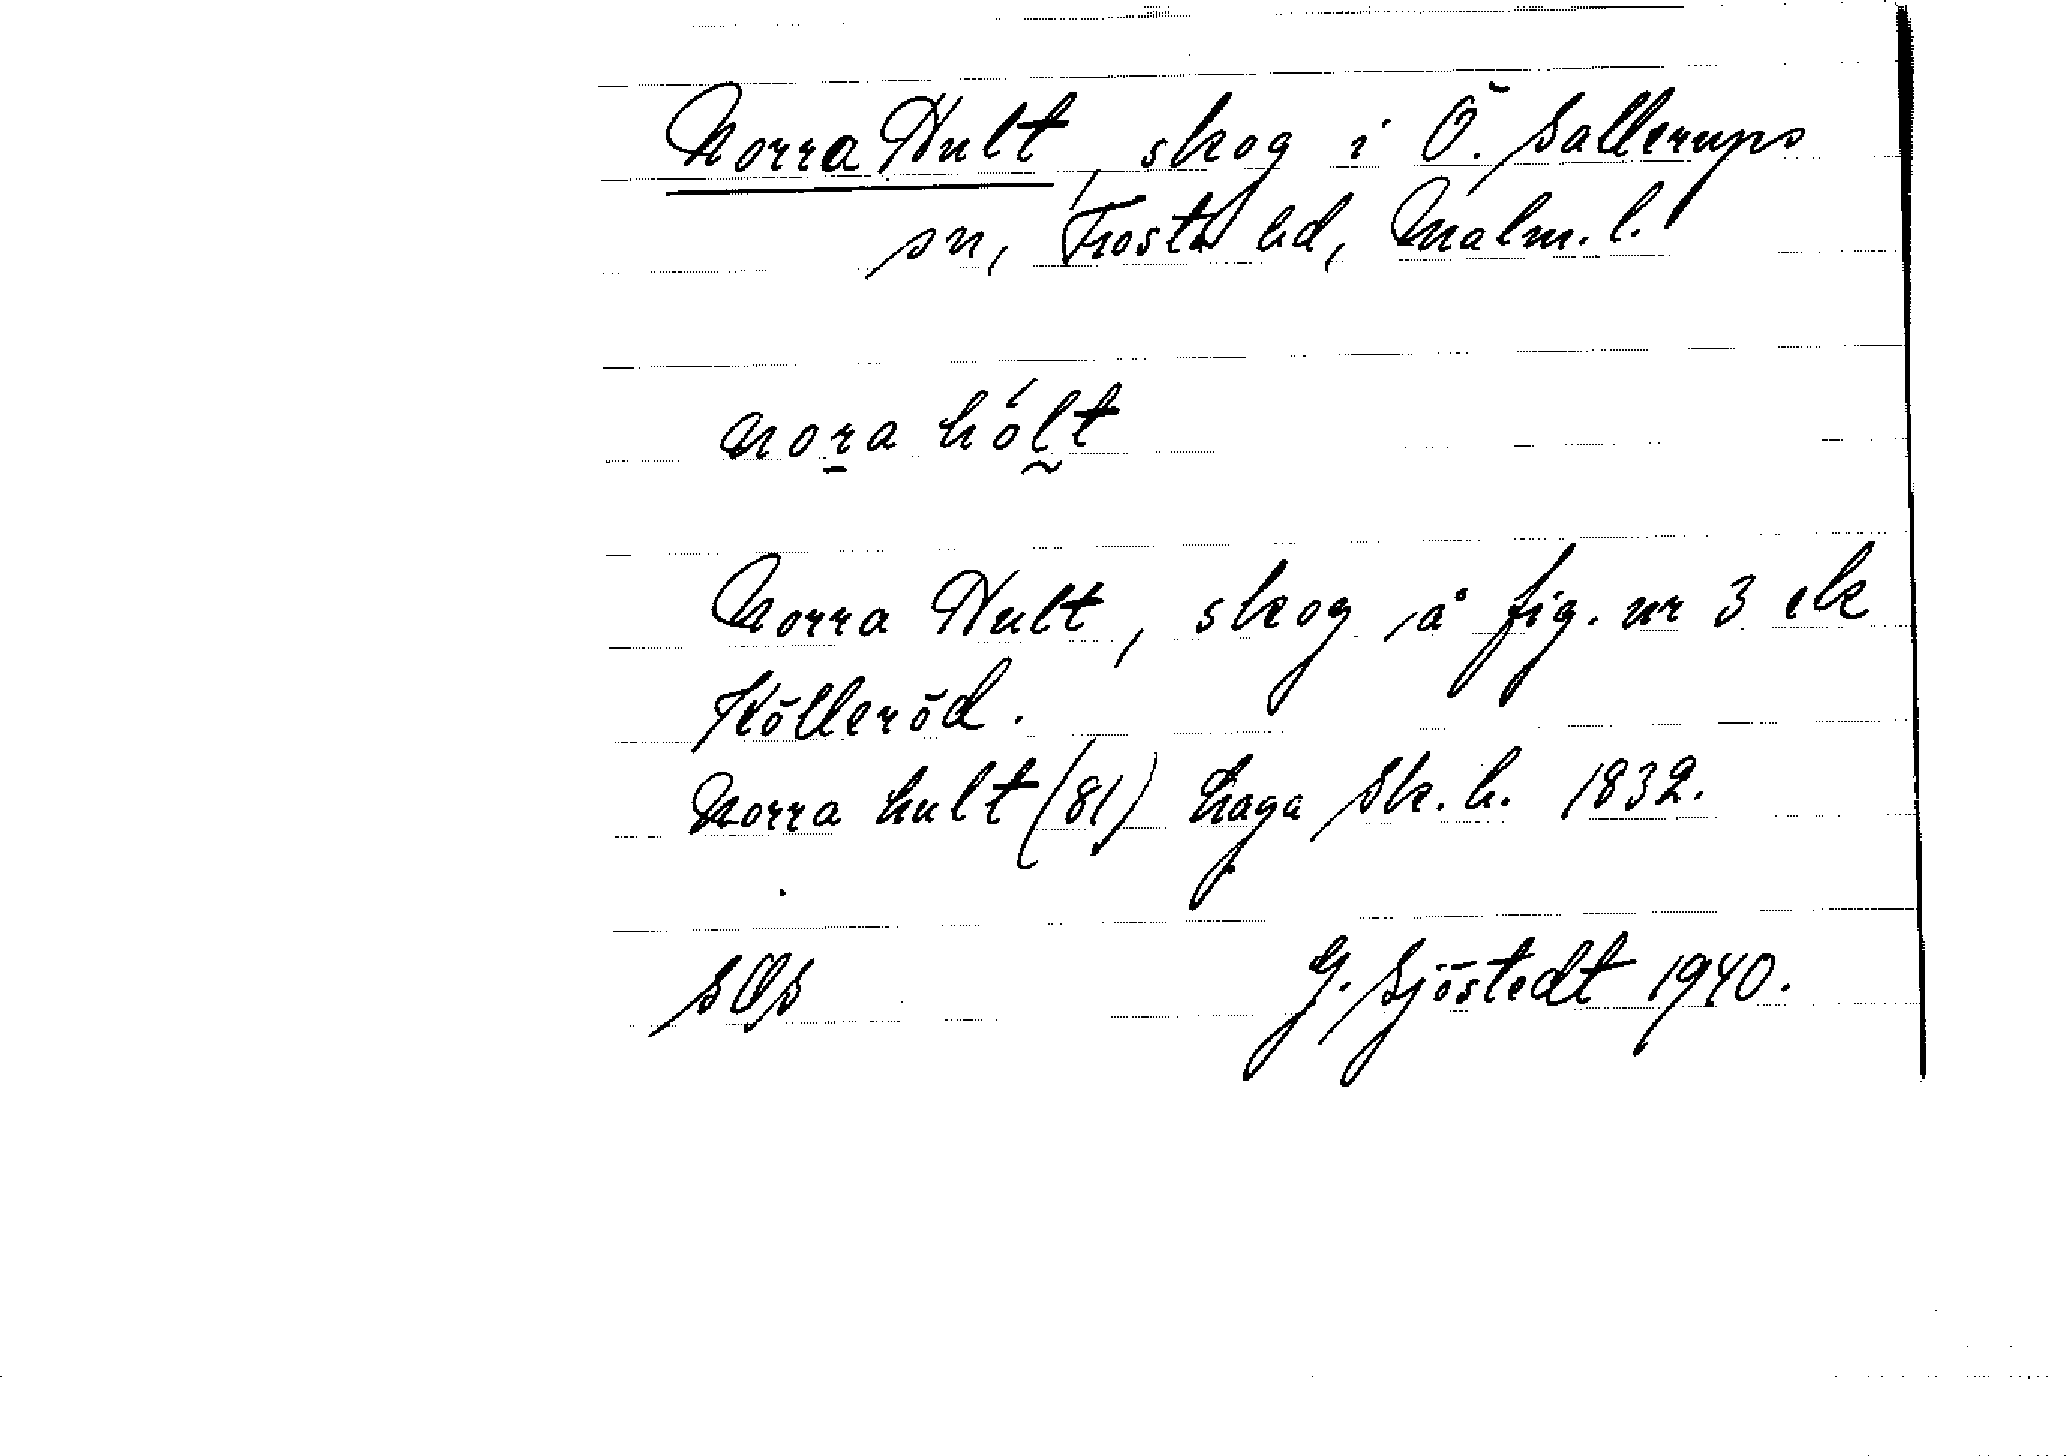 Norra Hult, skog i Ö. Sallerups
sn, Frosta hd, Malm. l.
nora hólt
Norra Hult, skog å fig. nr 3 ek
Kölleröd.
Norra hult (81) haga Sk. h. 1832.
SOS G. Sjöstedt 1940.